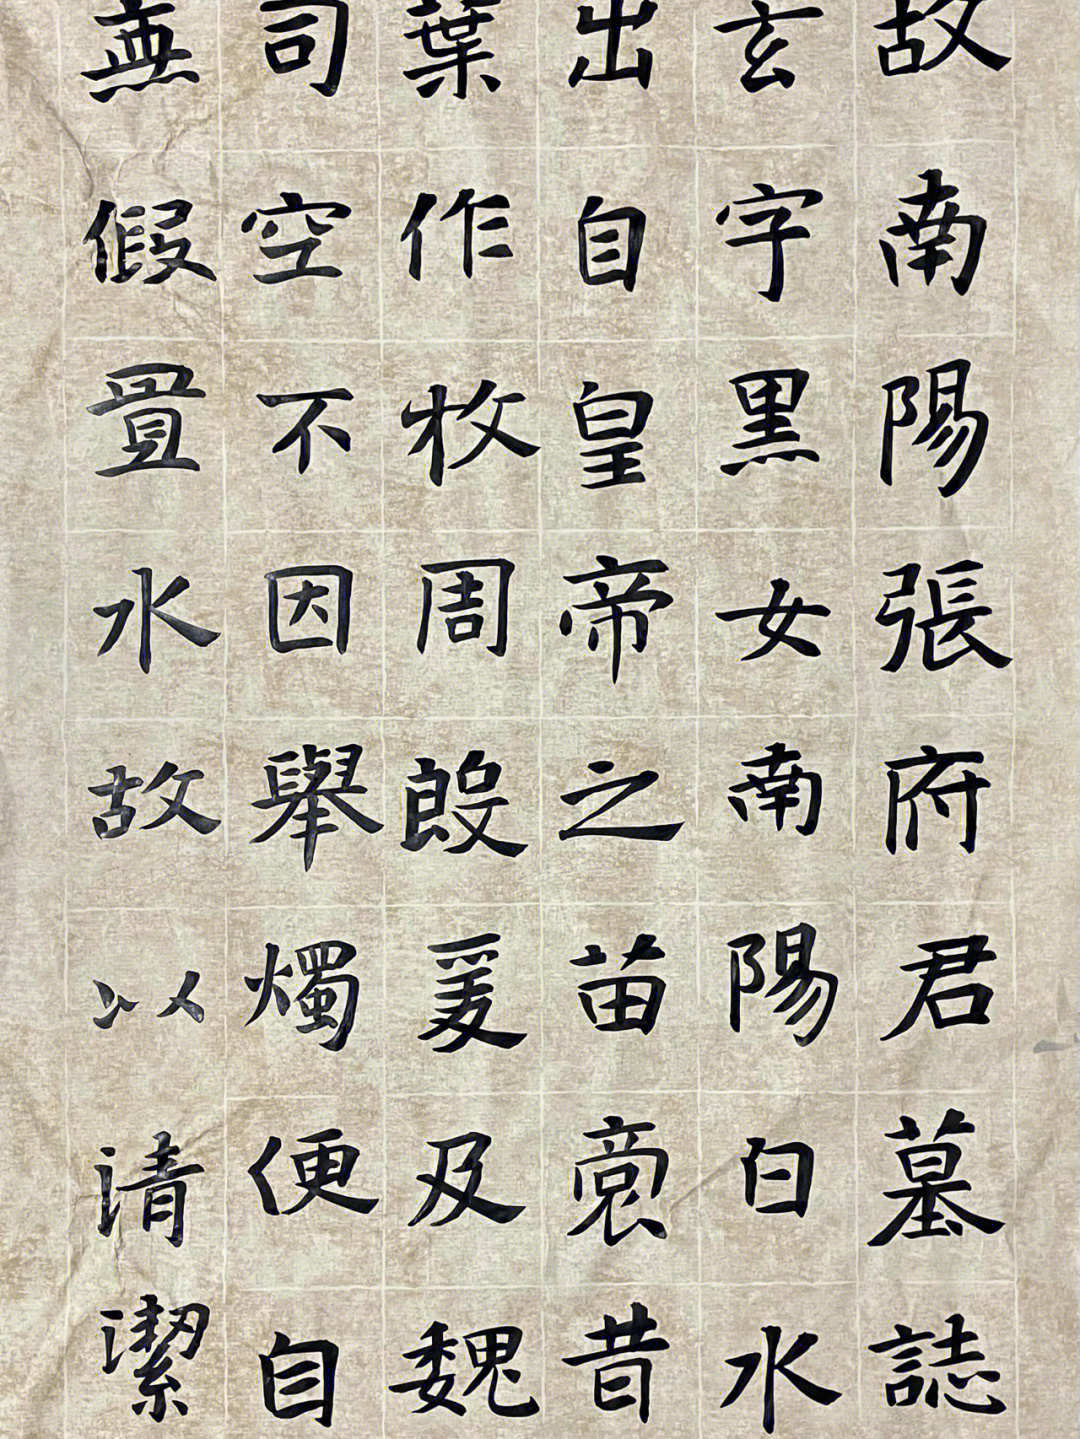 故南陽張府君墓誌
玄字黑女南陽白水
出自皇帝之苗裔昔
葉作牧周殷爰及魏
司空不因舉燭便自
無假置水故以清潔